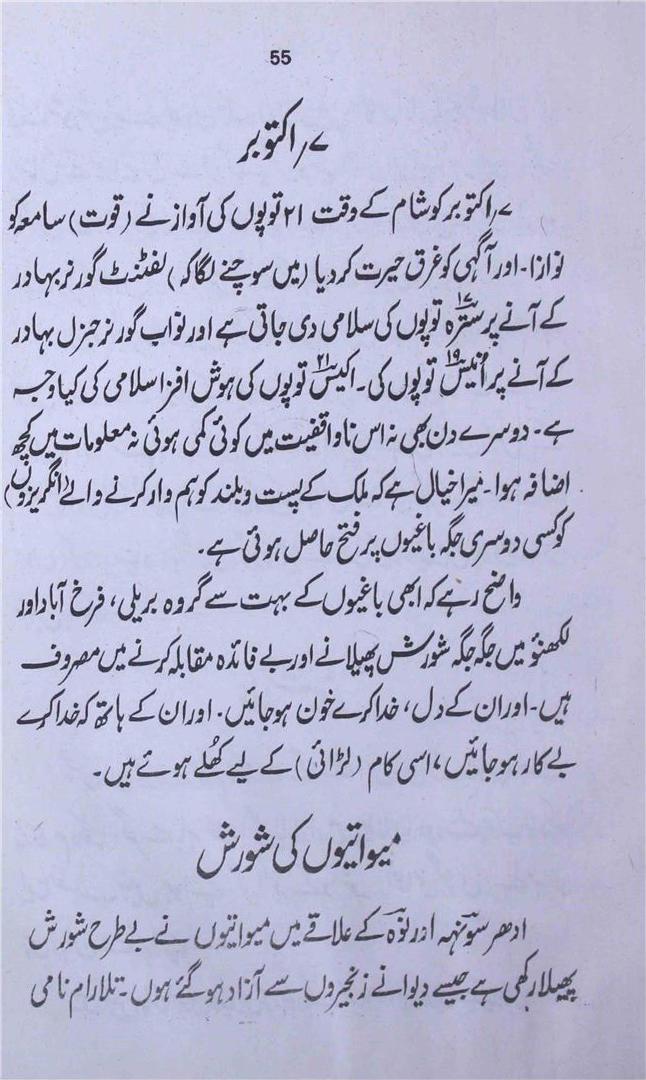 55
۷؍ اکتوبر
۷؍اکتوبر کو شام کے وقت ۲۱ توپوں کی آواز نے (قوت) سامعہ کو
نوازا۔ اور آگہی کو غرق حیرت کر دیا (میں سوچنے لگا کہ) لفٹننٹ گورنر بہادر
کے آنے پر سترہ ۱۷ توپوں کی سلامی دی جاتی ہے اور نواب گورنر جنرل بہادر
کے آنے پر انیس ۱۹ توپوں کی۔ اکیس ۲۱ توپوں کی ہوش افزا سلامی کی کیا وجہ
ہے۔ دوسرے دن بھی نہ اس ناواقفیت میں کوئی کمی ہوئی نہ معلومات میں کچھ
اضافہ ہوا۔ میرا خیال ہے کہ ملک کے پست و بلند کو ہم وار کرنے والے (انگریزوں)
کو کسی دوسری جگہ باغیوں پر فتح حاصل ہوئی ہے۔
واضح رہے کہ ابھی باغیوں کے بہت سے گروہ بریلی، فرخ آباد اور
لکھنؤ میں جگہ جگہ شورش پھیلانے اور بے فائدہ مقابلہ کرنے میں مصروف
ہیں۔ اور ان کے دل، خدا کرے خون ہو جائیں۔ اور ان کے ہاتھ کہ خدا کرے
بے کار ہو جائیں، اسی کام (لڑائی) کے لیے کھلے ہوئے ہیں۔
میواتیوں کی شورش
ادھر سوہنہ اور نوہ کے علاقے میں میواتیوں نے بے طرح شورش
پھیلا رکھی ہے جیسے دیوانے زنجیروں سے آزاد ہو گئے ہوں۔ تلارام نامی